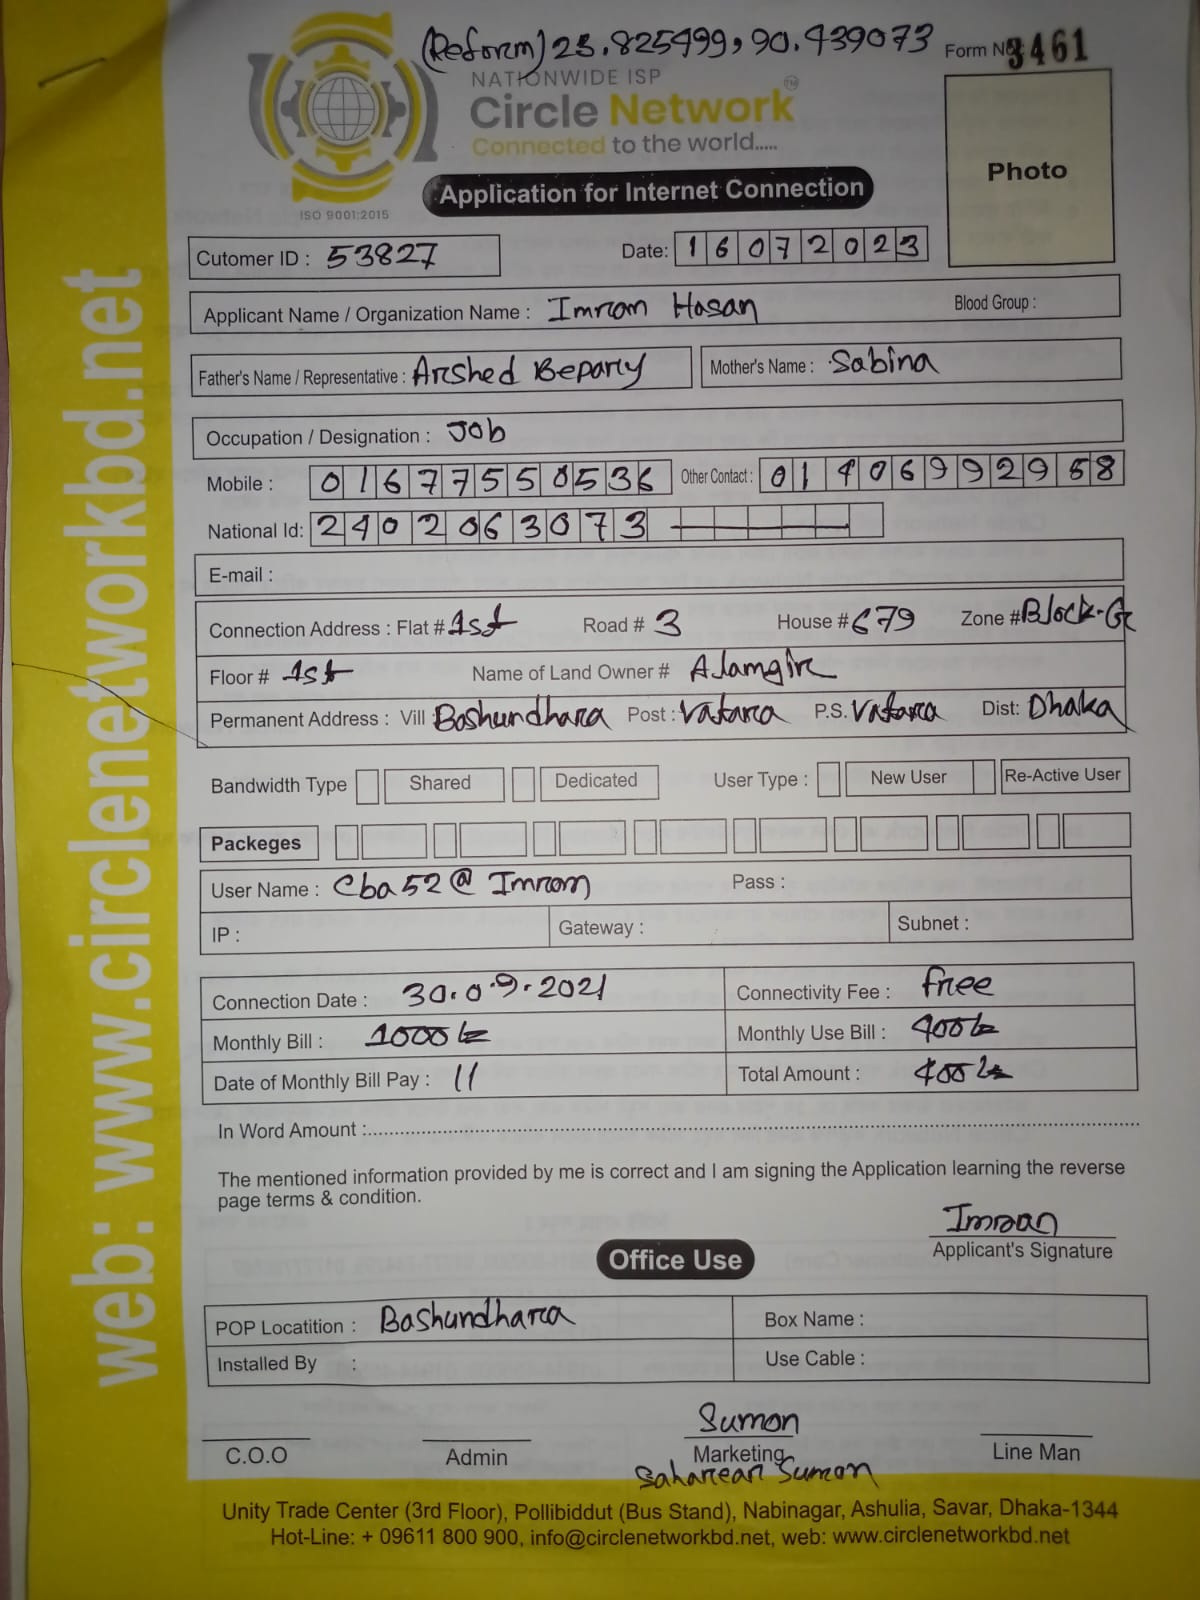 (Reform) 23.825499, 90.439073 Form No 3461
NATIONWIDE ISP
Circle Network TM
Connected to the world.....
Photo
Application for Internet Connection
ISO 9001:2015
Cutomer ID : 53827 Date: 16072023
Applicant Name / Organization Name : Imran Hasan Blood Group :
Father's Name / Representative : Arshed Bepary Mother's Name : Sabina
Occupation / Designation : Job
Mobile : 01677550536 Other Contact : 01406992958
National Id: 2402063073
E-mail :
Connection Address : Flat # 1st Road # 3 House # 679 Zone # Block-G
Floor # 1st Name of Land Owner # Alamgir
Permanent Address : Vill Bashundhara Post : Vatara P.S. Vatara Dist: Dhaka
Bandwidth Type Shared Dedicated User Type : New User Re-Active User
Packeges
User Name : Cba52@Imran Pass :
IP : Gateway : Subnet :
Connection Date : 30.09.2021 Connectivity Fee : free
Monthly Bill : 1000 Monthly Use Bill : 400
Date of Monthly Bill Pay : 11 Total Amount : 400
In Word Amount :
The mentioned information provided by me is correct and I am signing the Application learning the reverse
page terms & condition.
Imran
Applicant's Signature
Office Use
POP Locatition : Bashundhara Box Name :
Installed By : Use Cable :
Sumon
C.O.O Admin Marketing Line Man
Sumon
Unity Trade Center (3rd Floor), Pollibiddut (Bus Stand), Nabinagar, Ashulia, Savar, Dhaka-1344
Hot-Line: + 09611 800 900, info@circlenetworkbd.net, web: www.circlenetworkbd.net
web: www.circlenetworkbd.net